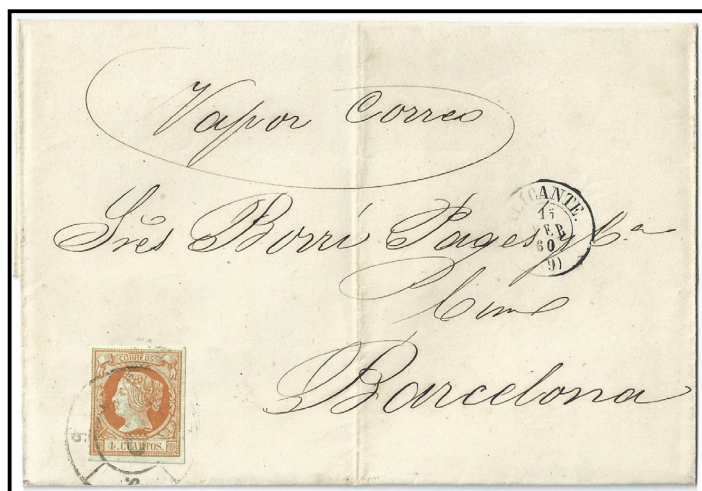 Vapor Correo
ALICANTE.
15
FEB
60
(9)
Sres Borri Pages y Ca
Barcelona
CORREOS
4 CUARTOS.